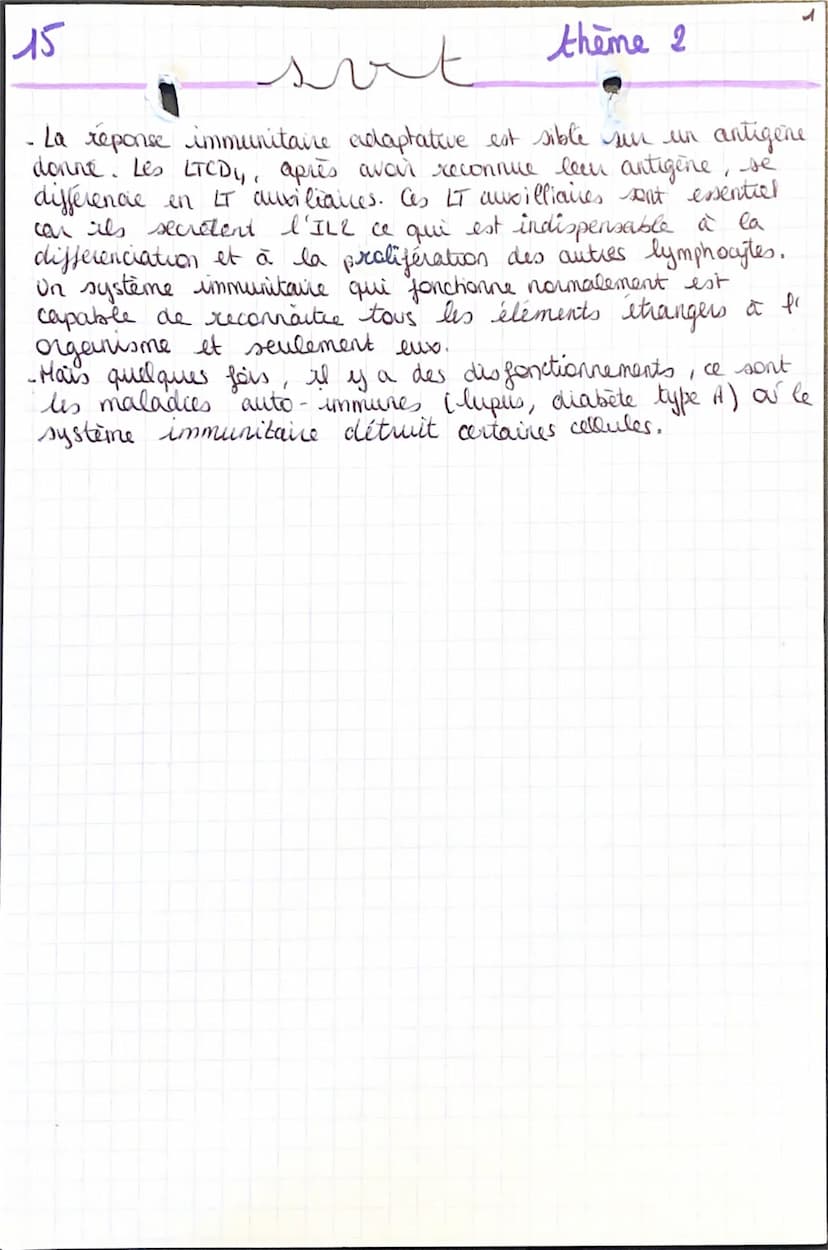 1
15 svt thème 2
- La réponse immunitaire adaptative est siblé sur un antigène
donné. Les LTCD4, après avoir reconnue leur antigène, se
différencie en LT auxiliaires. Ces LT auxilliaires sont essentiel
car ils secrètent l'IL2 ce qui est indispensable à la
différenciation et à la prolifération des autres lymphocytes.
Un système immunitaire qui fonctionne normalement est
capable de reconnaître tous les éléments étrangers à l'
organisme et seulement eux.
- Mais quelques fois, il y a des disfonctionnements, ce sont
les maladies auto-immunes (lupus, diabète type 1) où le
système immunitaire détruit certaines cellules.